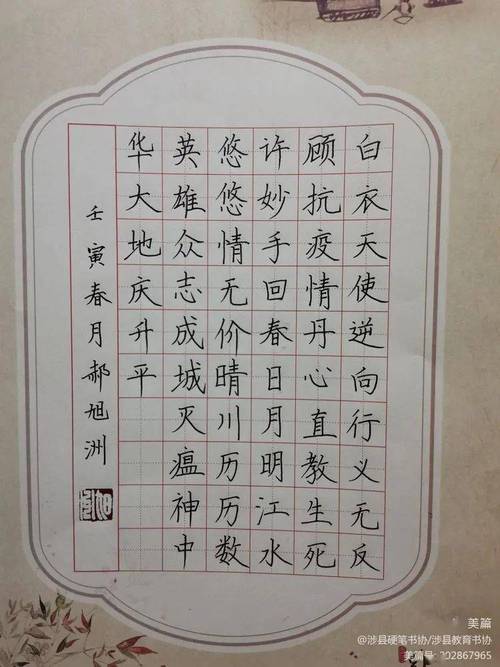 白衣天使逆向行义无反
顾抗疫情丹心直教生死
许妙手回春日月明江水
悠悠情无价晴川历历数
英雄众志成城灭瘟神中
华大地庆升平
壬寅春月郝旭洲
美篇
@涉县硬笔书协/涉县教育书协
美篇号:202867965